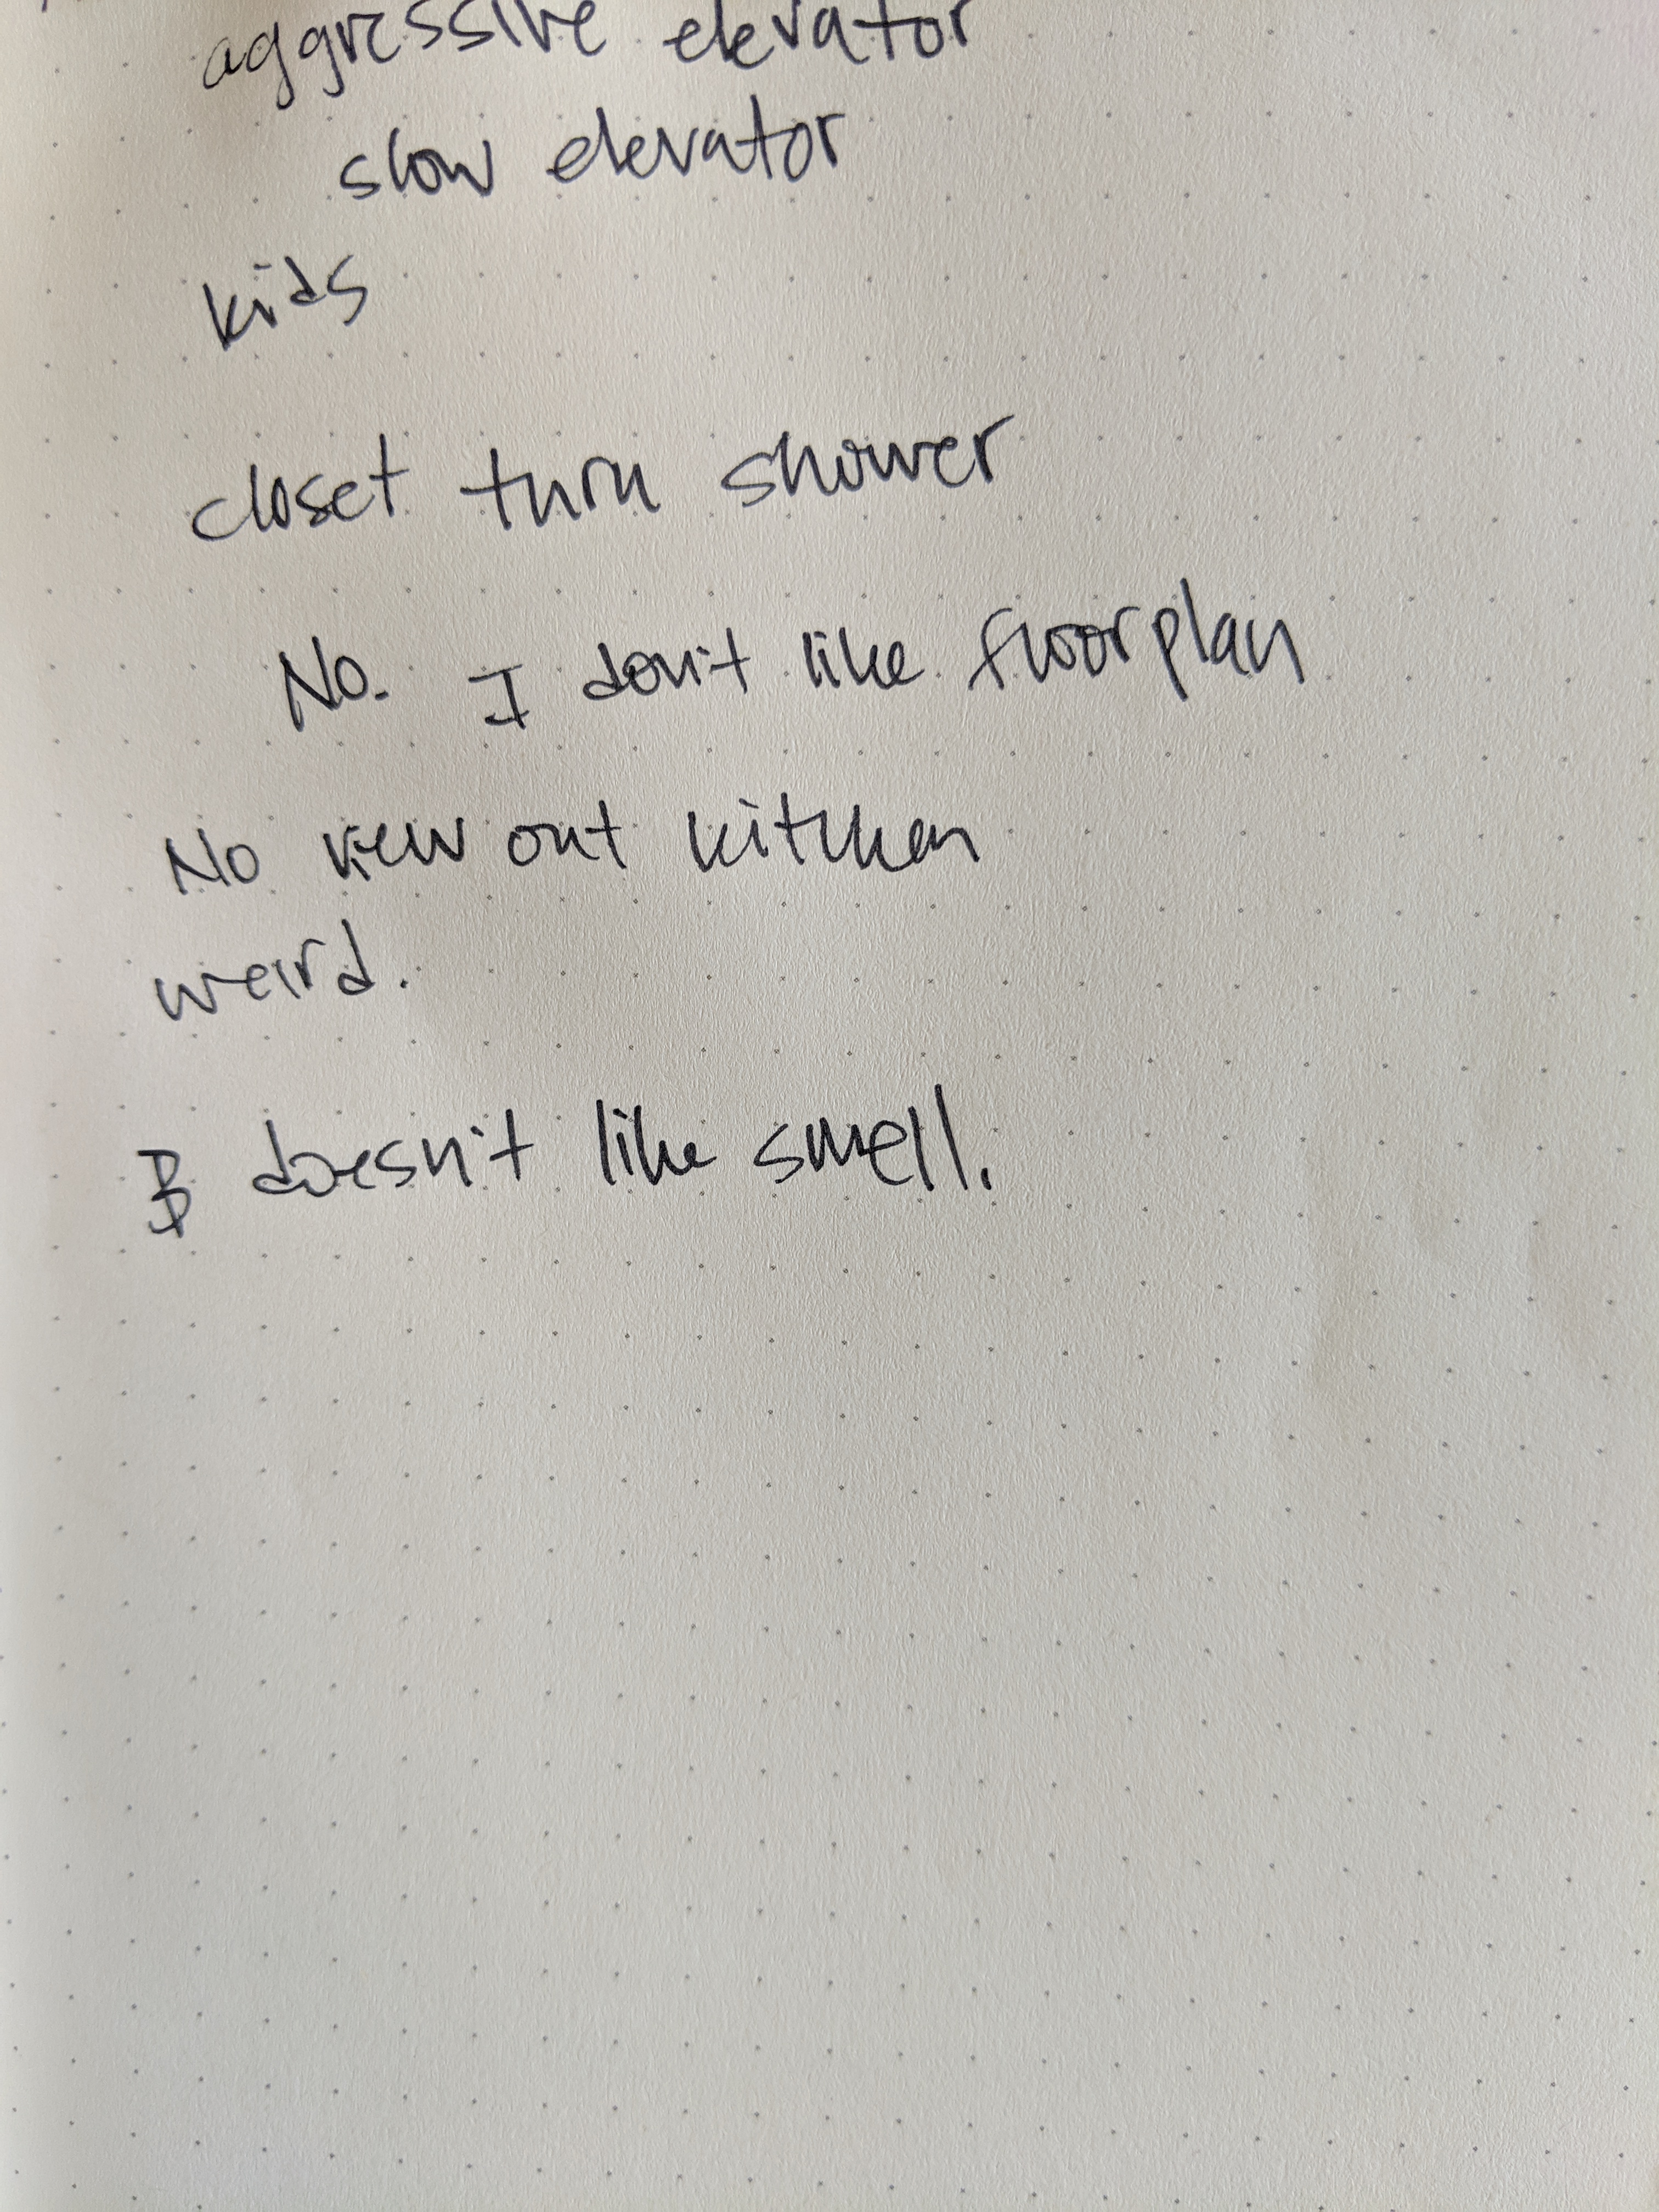 aggressive elevator
slow elevator
kids
closet turn shower
No. I don't like floorplan
No view out kitchen
weird.
B doesn't like smell.